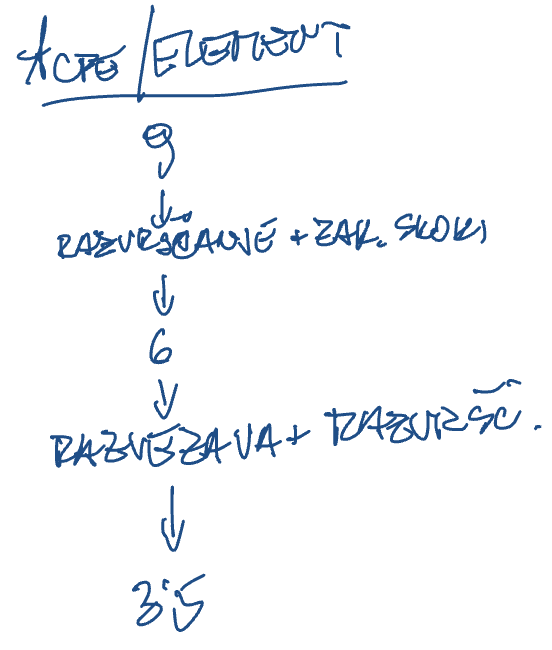 ACPE/ELEMENT
9
↓
RAZVRŠČANJE + ZAK. SKOKI
↓
6
↓
RAZVEZAVA + RAZVRŠČ.
↓
3.5